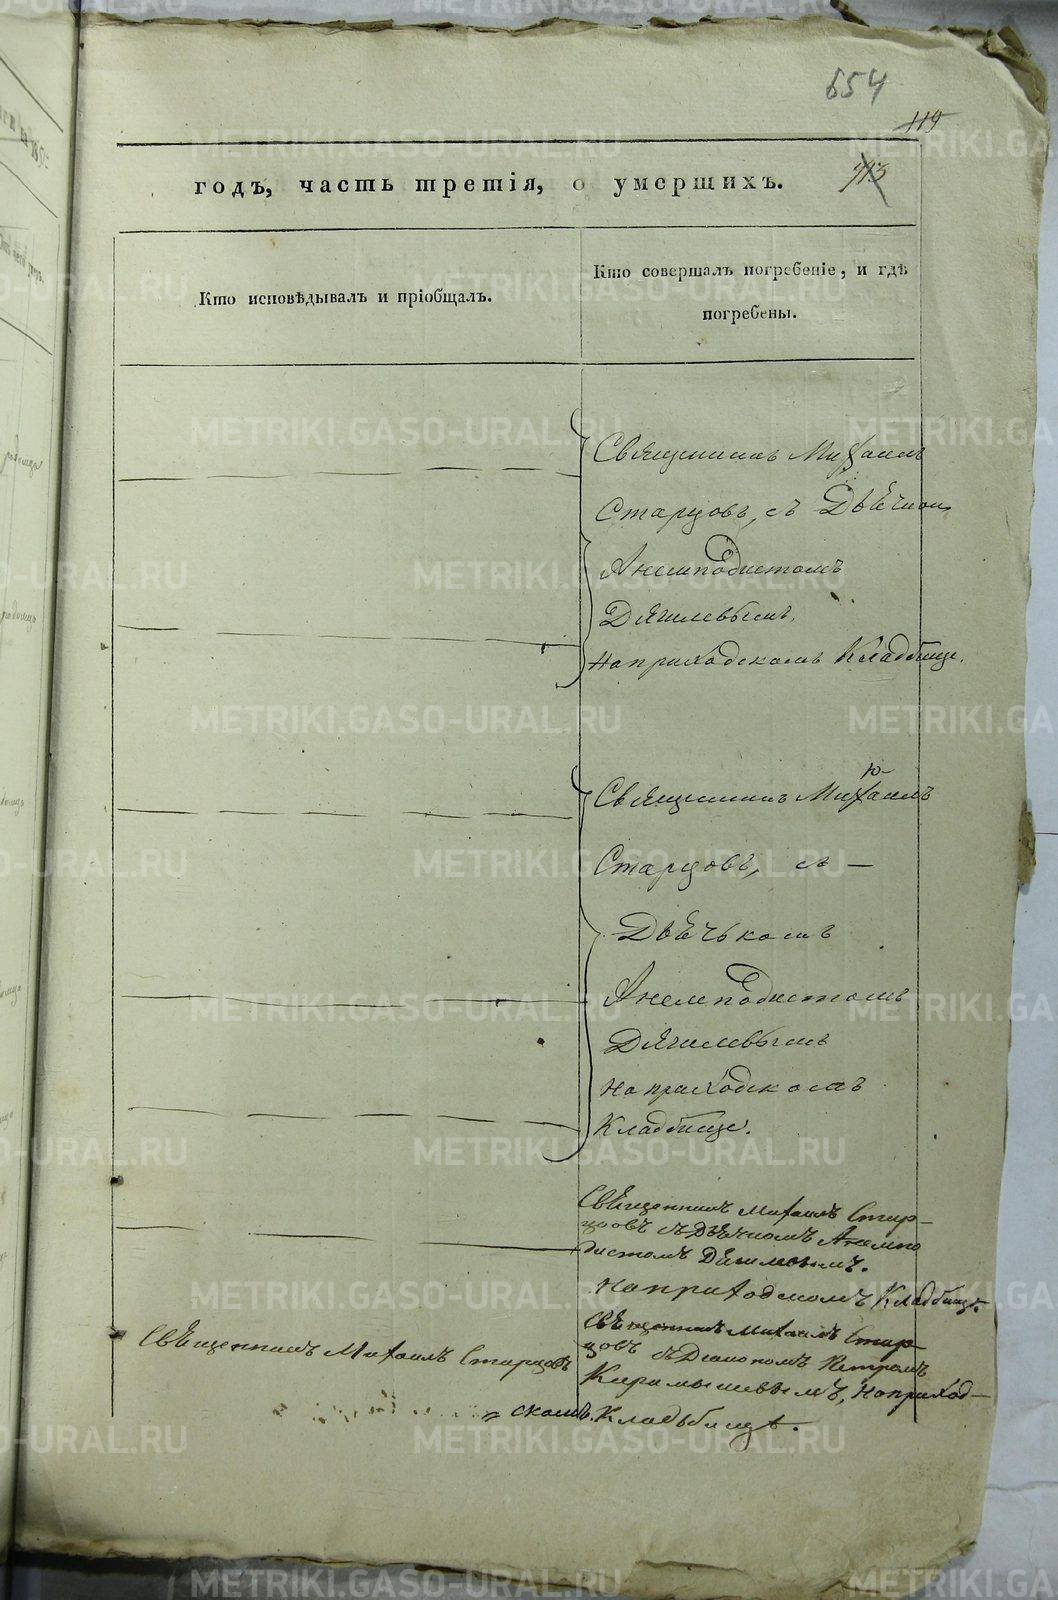 654
119
913
годъ, часть третія, о умершихъ.
Кто исповѣдывалъ и пріобщалъ.
Кто совершалъ погребеніе, и гдѣ
погребены.
Священникъ Михаилъ
Старцовъ, съ Дьячком
Анемподистомъ
Дягилевымъ,
на приходскомъ Кладбище.
Священникъ Михаилъ
Старцовъ, съ —
Дьячькомъ
Анемподистомъ
Дягилевымъ
на приходскомъ
Кладбище.
Священникъ Михаилъ Стар-
цовъ съ Дьячкомъ Анемпо
дистомъ Дягилевымъ.
На приходскомъ Кладбище.
Священникъ Михаилъ Старцовъ
Священникъ Михаилъ Стар-
цовъ съ Діакономъ Петромъ
на приход-
= скомъ Кладьбищѣ.
METRIKI.GASO-URAL.RU